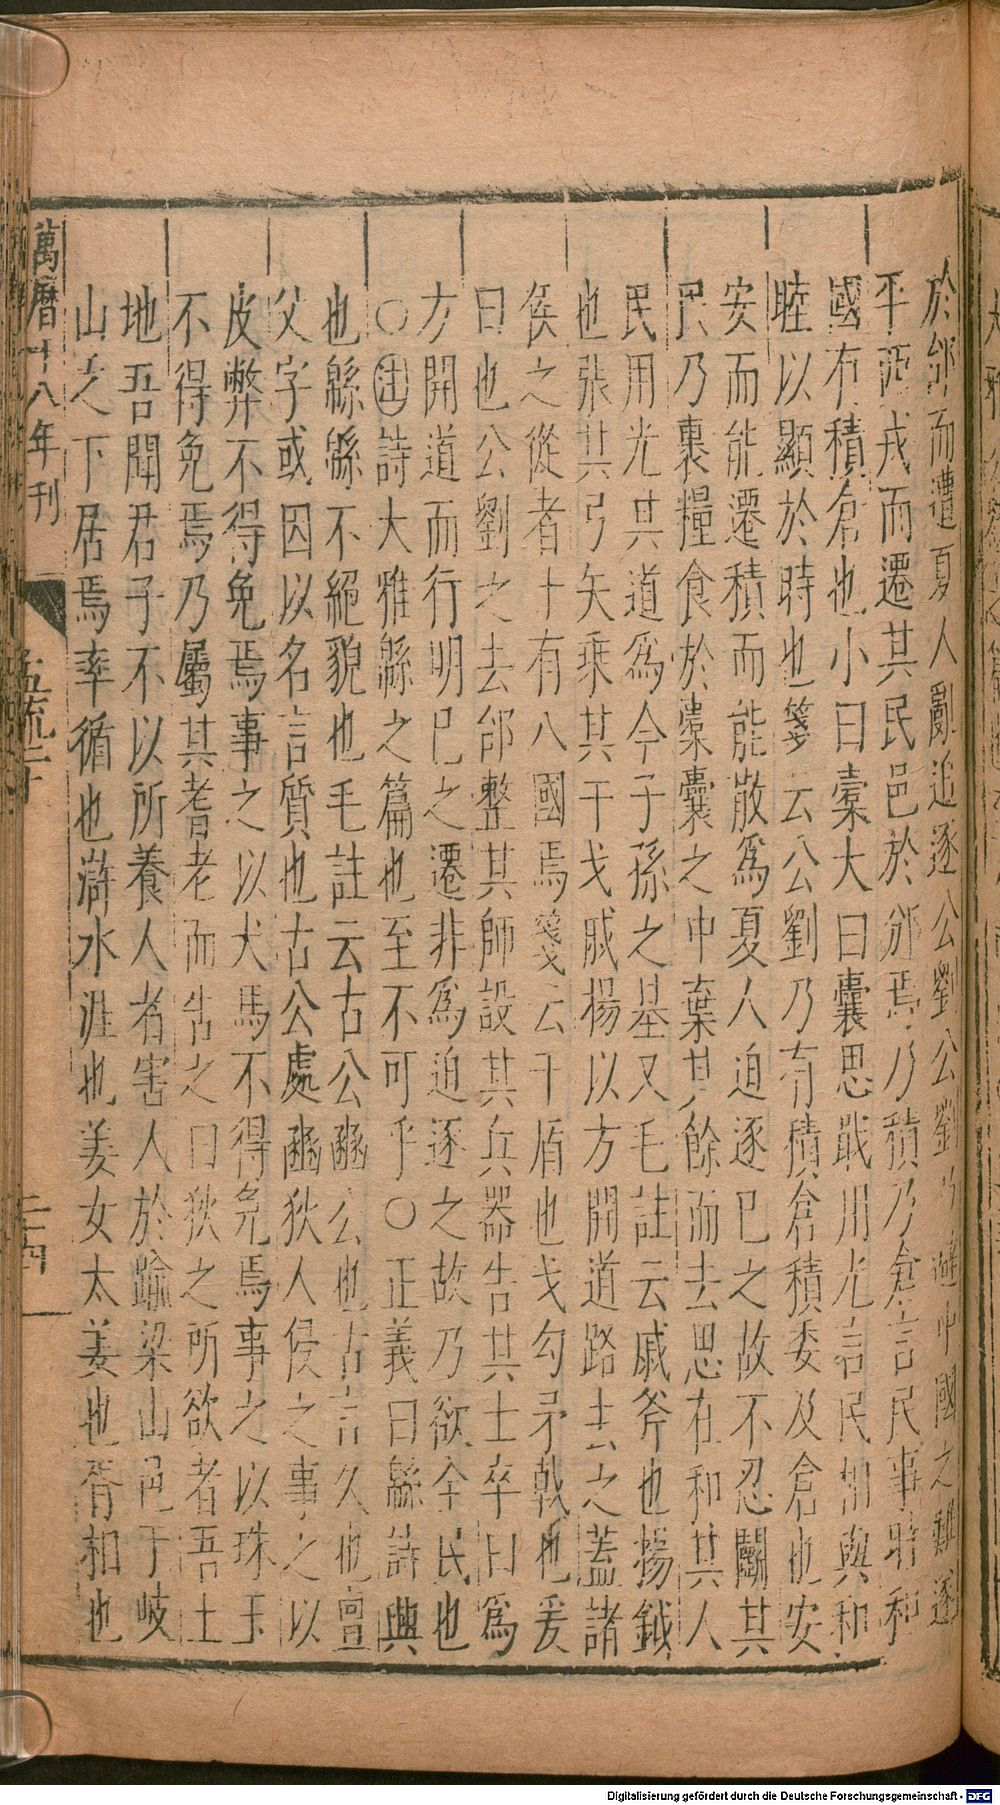 於邰而遭夏人亂迫逐公劉公劉乃避中國之難遂
平西戎而遷其民邑於邠焉乃積乃倉言民事時和
國有積倉也小曰橐大曰囊思戢用光言民相與和
睦以顯於時也箋云公劉乃有積倉積委及倉也安
安而能遷積而能散為夏人迫逐巳之故不忍鬬其
民乃裹糧食於橐囊之中棄其餘而去思在和其人
民用光其道為今子孫之基又毛註云戚斧也揚鉞
也張其弓矢乗其干戈戚揚以方開道路去之蓋諸
侯之從者十有八國焉箋云干盾也戈勾矛戟也爰
曰也公劉之去邰整其師設其兵器告其士卒曰為
方開道而行明巳之遷非為迫逐之故乃欲全民也
○註詩大雅緜之篇也至不可乎○正義曰緜詩典
也緜緜不絕貌也毛註云古公豳公也古言久也亶
父字或因以名言質也古公處豳狄人侵之事之以
皮幣不得免焉事之以犬馬不得免焉事之以珠玉
不得免焉乃屬其耆老而告之曰狄之所欲者吾土
地吾聞君子不以所養人者害人於踰梁山邑于岐
山之下居焉率循也滸水涯也姜女太姜也胥相也
萬曆十八年刊
孟疏二十
二十四
Digitalisierung gefördert durch die Deutsche Forschungsgemeinschaft - DFG